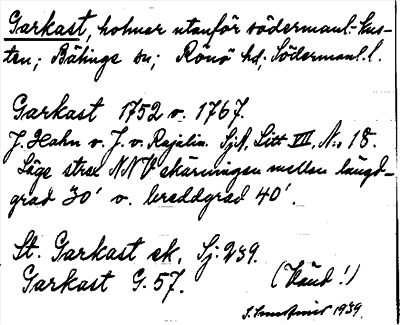 Garkast, holmar utanför södermanl. kus-
ten; Bälinge sn; Rönö hd; Södermanl. l.
Garkast 1752 o. 1767.
J. Hahn o. J. v. Rajalin. Sjk, Litt VII, N:o 18.
Läge strax NNV skärningen mellan längd-
grad 30' o. breddgrad 40'.
St. Garkast sk. Sj: 239.
Garkast G. 57.
(Vänd!)
1939.